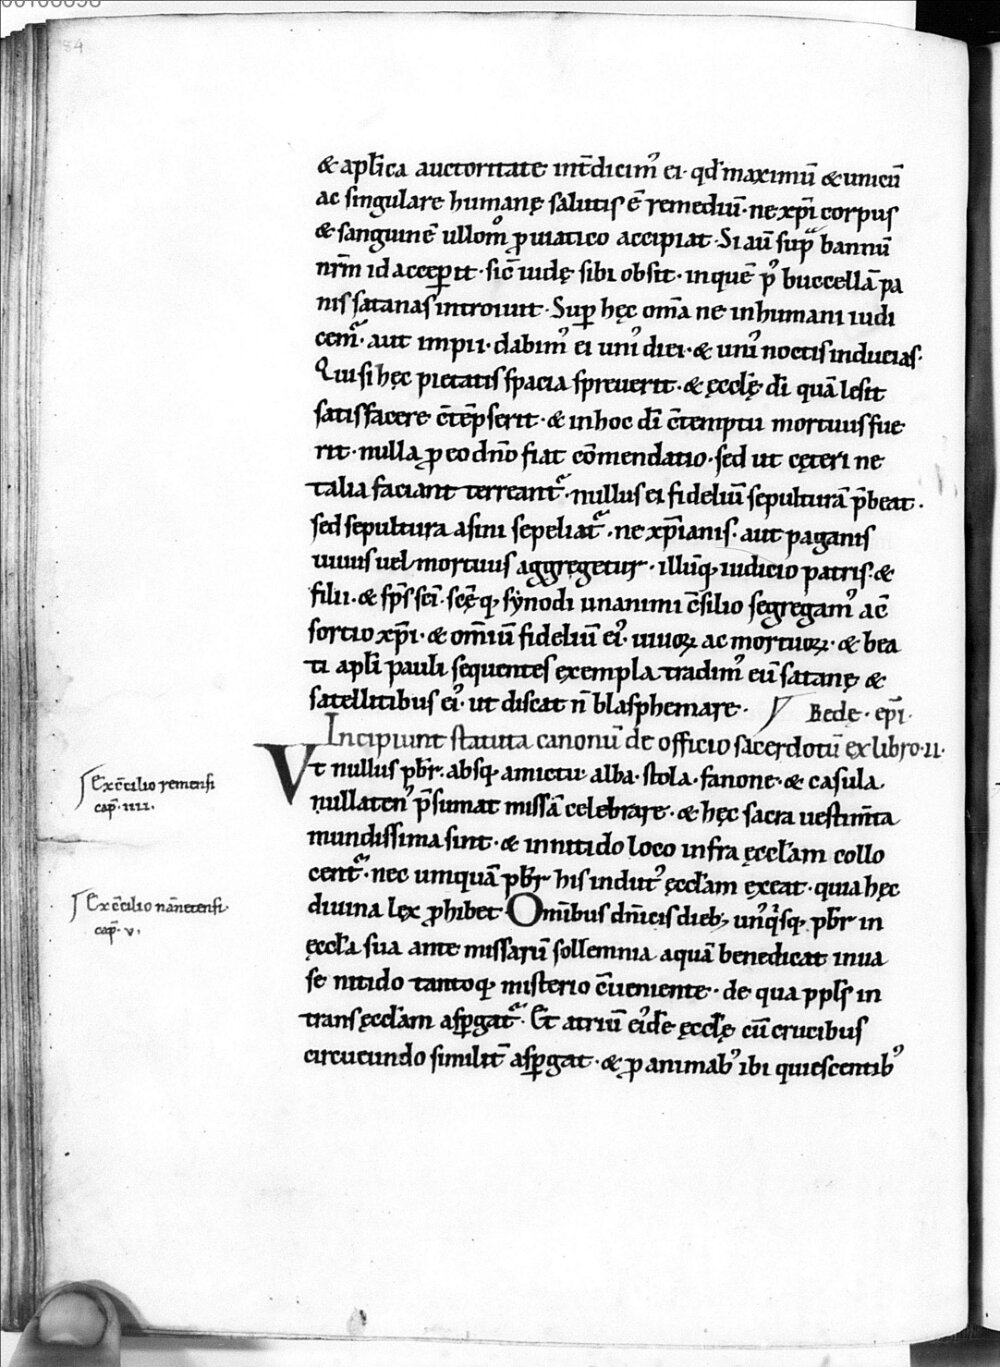 84
& apl̄ica auctoritate int̄dicim᾿ ei· qđ maximū & unicū
ac singulare humanę salutis ē remediū· ne xp̄i corpus
& sanguinē ullom̊ ꝓ uiatico accipiat· Si aū sup͛ bannū
nr̄m id acceꝑit· sic̄ iudę sibi obsit· in quē p᾿ buccellā pa
nis satanas introiuit· Suꝑ hęc om̄a ne inhumani iudi
cem͛· aut impii· dabim᾿ ei uni᾿ diei· & uni᾿ noctis inducias·
Qui si hęc pietatis spacia spreuerit· & ęccl̄ę dī quā lesit
satisfacere c̄tēpserit· & in hoc dī c̄temptu mortuus fue
rit· nulla ꝓ eo dn̄o fiat cōmendatio· sed ut cęteri ne
talia faciant terreant͛· nullus ei fideliū sepulturā p̄beat·
sed sepultura asini sepeliat͛· ne xp̄ianis· aut paganis
uiuus uel mortuus aggregetur· illūq; iudicio patris· &
filii· & sp̄s sc̄i· sc̄ęq; synodi unanimi c̄silio segregam᾿ a c̄
sortio xp̄i· & om̄iū fideliū ei᾿· uiuoꝝ ac mortuoꝝ· & bea
ti apl̄i pauli sequentes exempla tradim᾿ eū satanę &
satellitibus ei᾿ ut discat n̄ blasphemare·
Bede· ep̄i·
Incipiunt statuta canonū de officio sacerdotū ex libro·ii·
Vt nullus pb̄r· absq; amictu· alba· stola· fanone· & casula·
nullaten᾿ p̄sumat missā celebrare· & hęc sacra uestim̄ta
mundissima sint· & in nitido loco infra ęccl̄am collo
cent͛· nec umquā pb̄r his indut᾿ ęccl̄am exeat· quia hęc
diuina lex ꝓhibet· Omībus dn̄icis dieb; un᾿qisq; pb̄r in
ęccl̄a sua ante missarū sollemnia aquā benedicat in ua
se nitido tantoq; misterio c̄ueniente· de qua ppl̄s in
trans ęccl̄am aspꝑgat͛· Et atriū ei᾿dē ęccl̄ę cū crucibus
circueundo similit̄ asꝑgat· & ꝓ animab᾿ ibi quiescentib᾿
Ex c̄cilio remensi
cap̄· iiii·
Ex c̄cilio nānetensi·
cap̄· v·